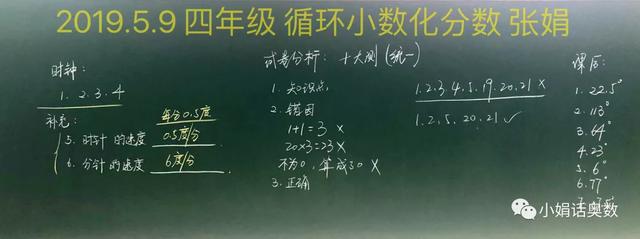 2019.5.9 四年级 循环小数化分数 张娟
时钟:
1. 2. 3. 4
补充:
每分0.5度
5. 时针的速度 0.5度/分
6. 分针的速度 6度/分
试卷分析: 十大测(统一)
1. 知识点
2. 错因
1+1=3 ×
20×3=23 ×
×
3. 正确
1. 2. 3. 4. 5. 19. 20. 21 ×
1. 2. 5. 20. 21 ✓
课后:
1. 22.5°
2. 113°
3. 64°
4. 23°
5. 6°
6. 77°
小娟话奥数